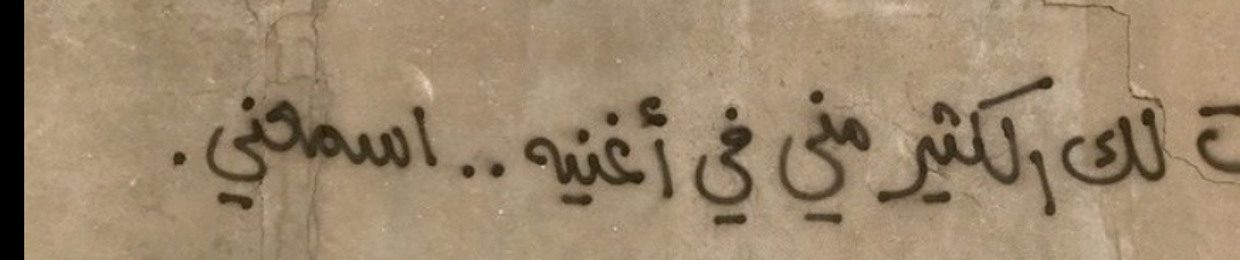 لك الكثير مني في أغنيه .. اسمعني .